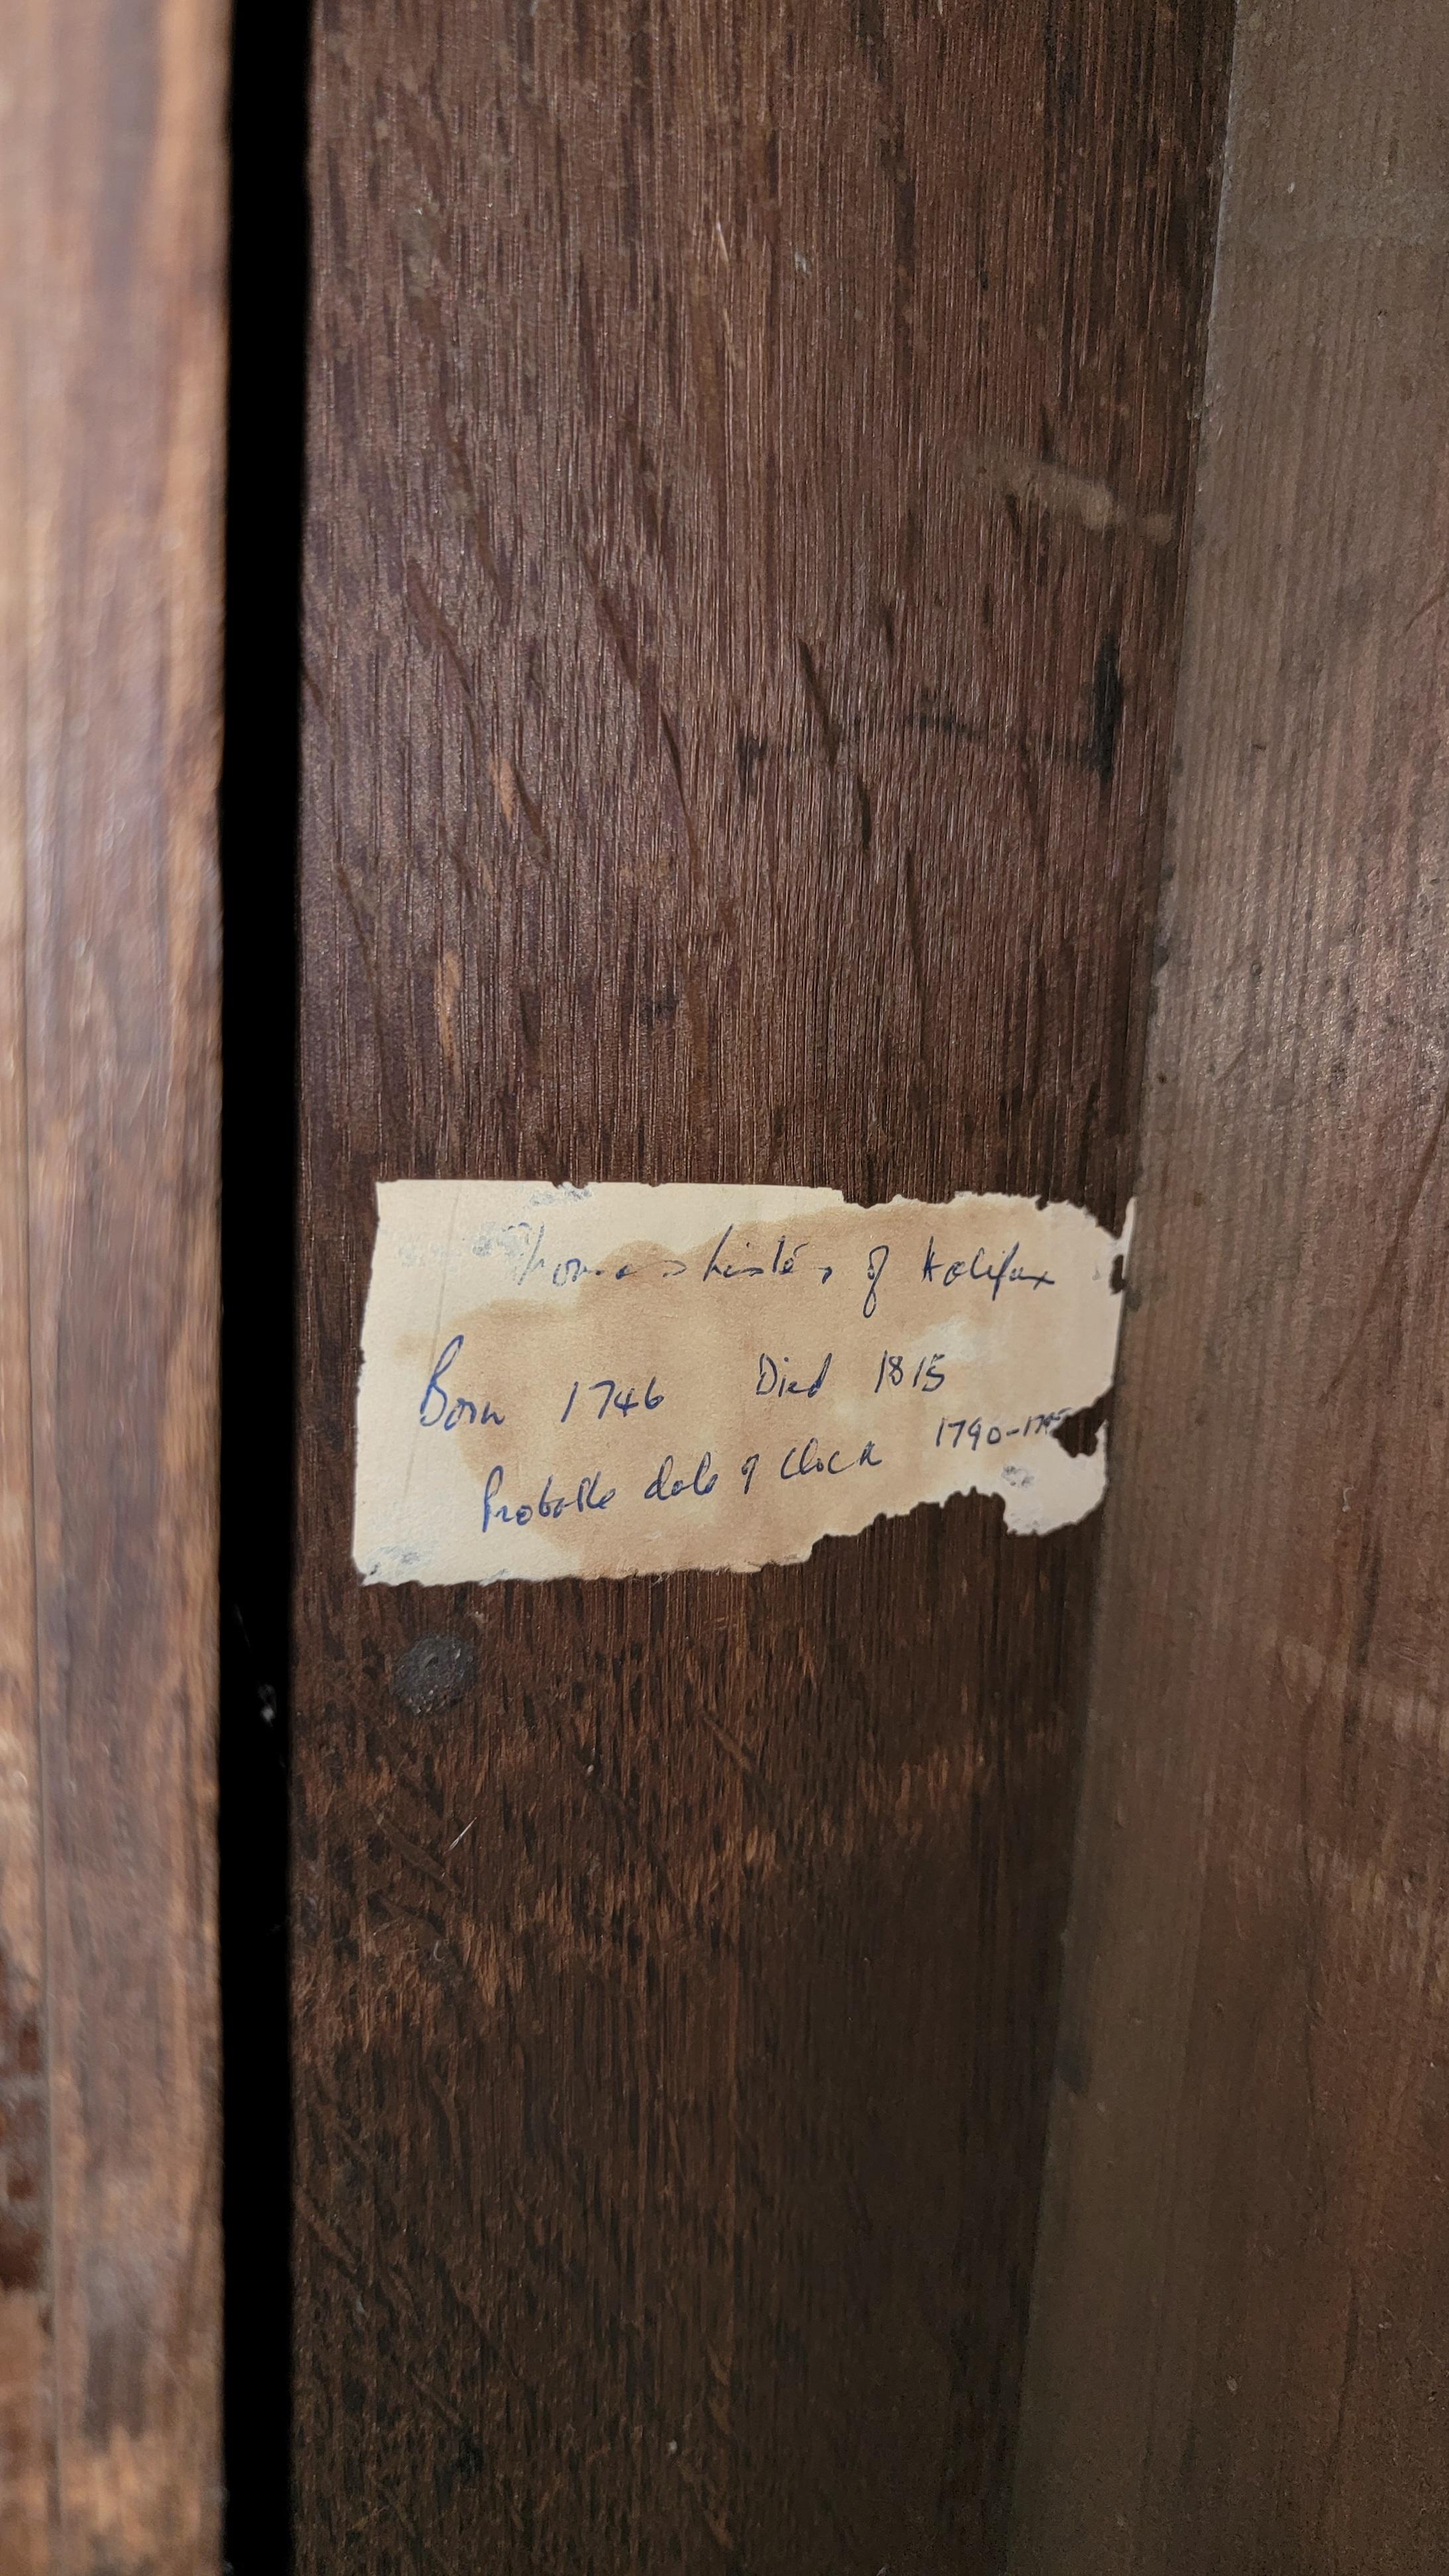 Thomas Lister of Halifax
Born 1746 Died 1815
Probable date of clock 1790-1795